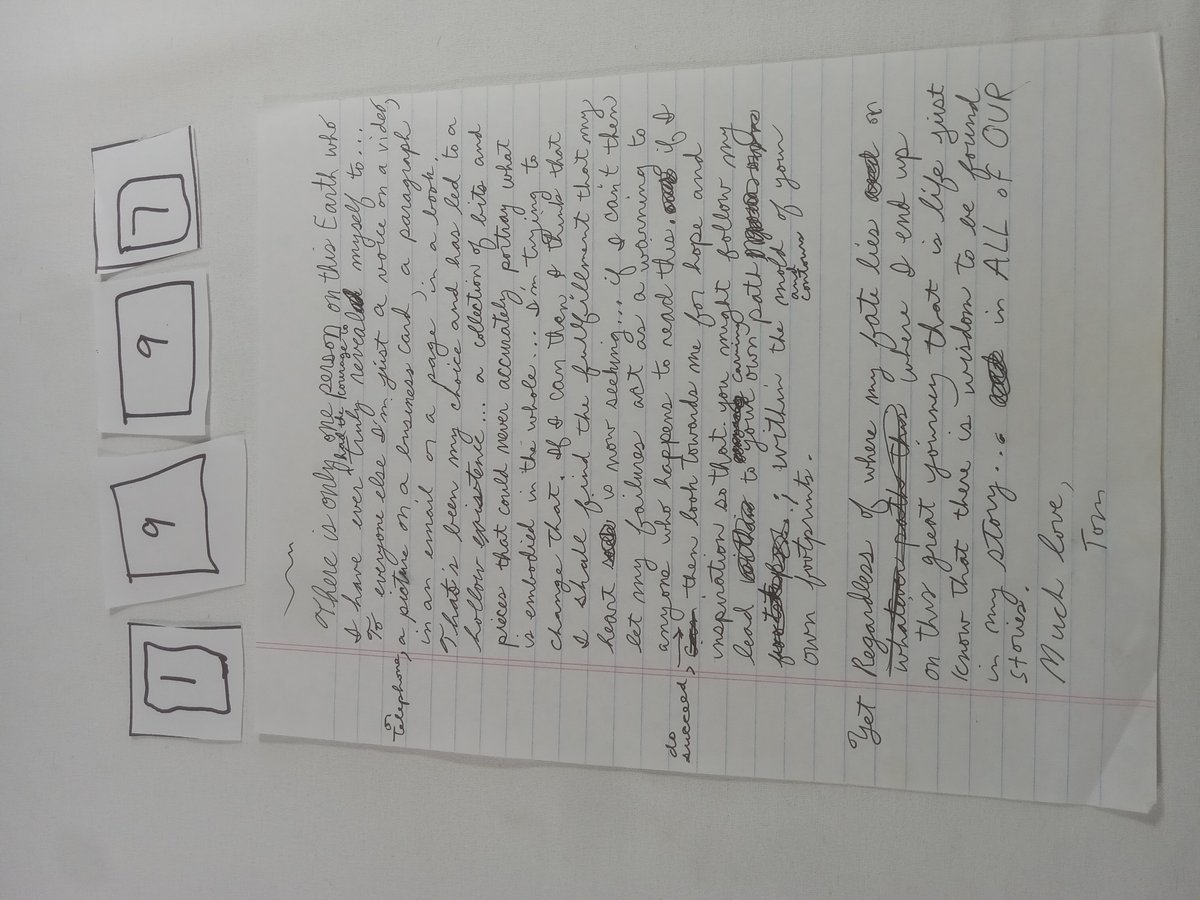 1 9 9 7
There is only one person on this Earth who
I have ever had the courage to truly reveal myself to...
To everyone else I'm just a voice on a video,
or telephone, a picture on a business card, a paragraph
in an email or a page in a book.
That's been my choice and has led to a
hollow existence... a collection of bits and
pieces that could never accurately portray what
is embodied in the whole... I'm trying to
change that. If I can then I think that
I shall find the fulfillment that my
heart is now seeking... if I can't then
let my failures act as a warning to
anyone who happens to read this. if I
do succeed, then look towards me for hope and
inspiration so that you might follow my
lead to carving your own path
within the mold and contours of your
own footprints.
Yet Regardless of where my fate lies or
where I end up
on this great journey that is life just
know that there is wisdom to be found
in my story... in ALL of OUR
stories.
Much love,
Tom